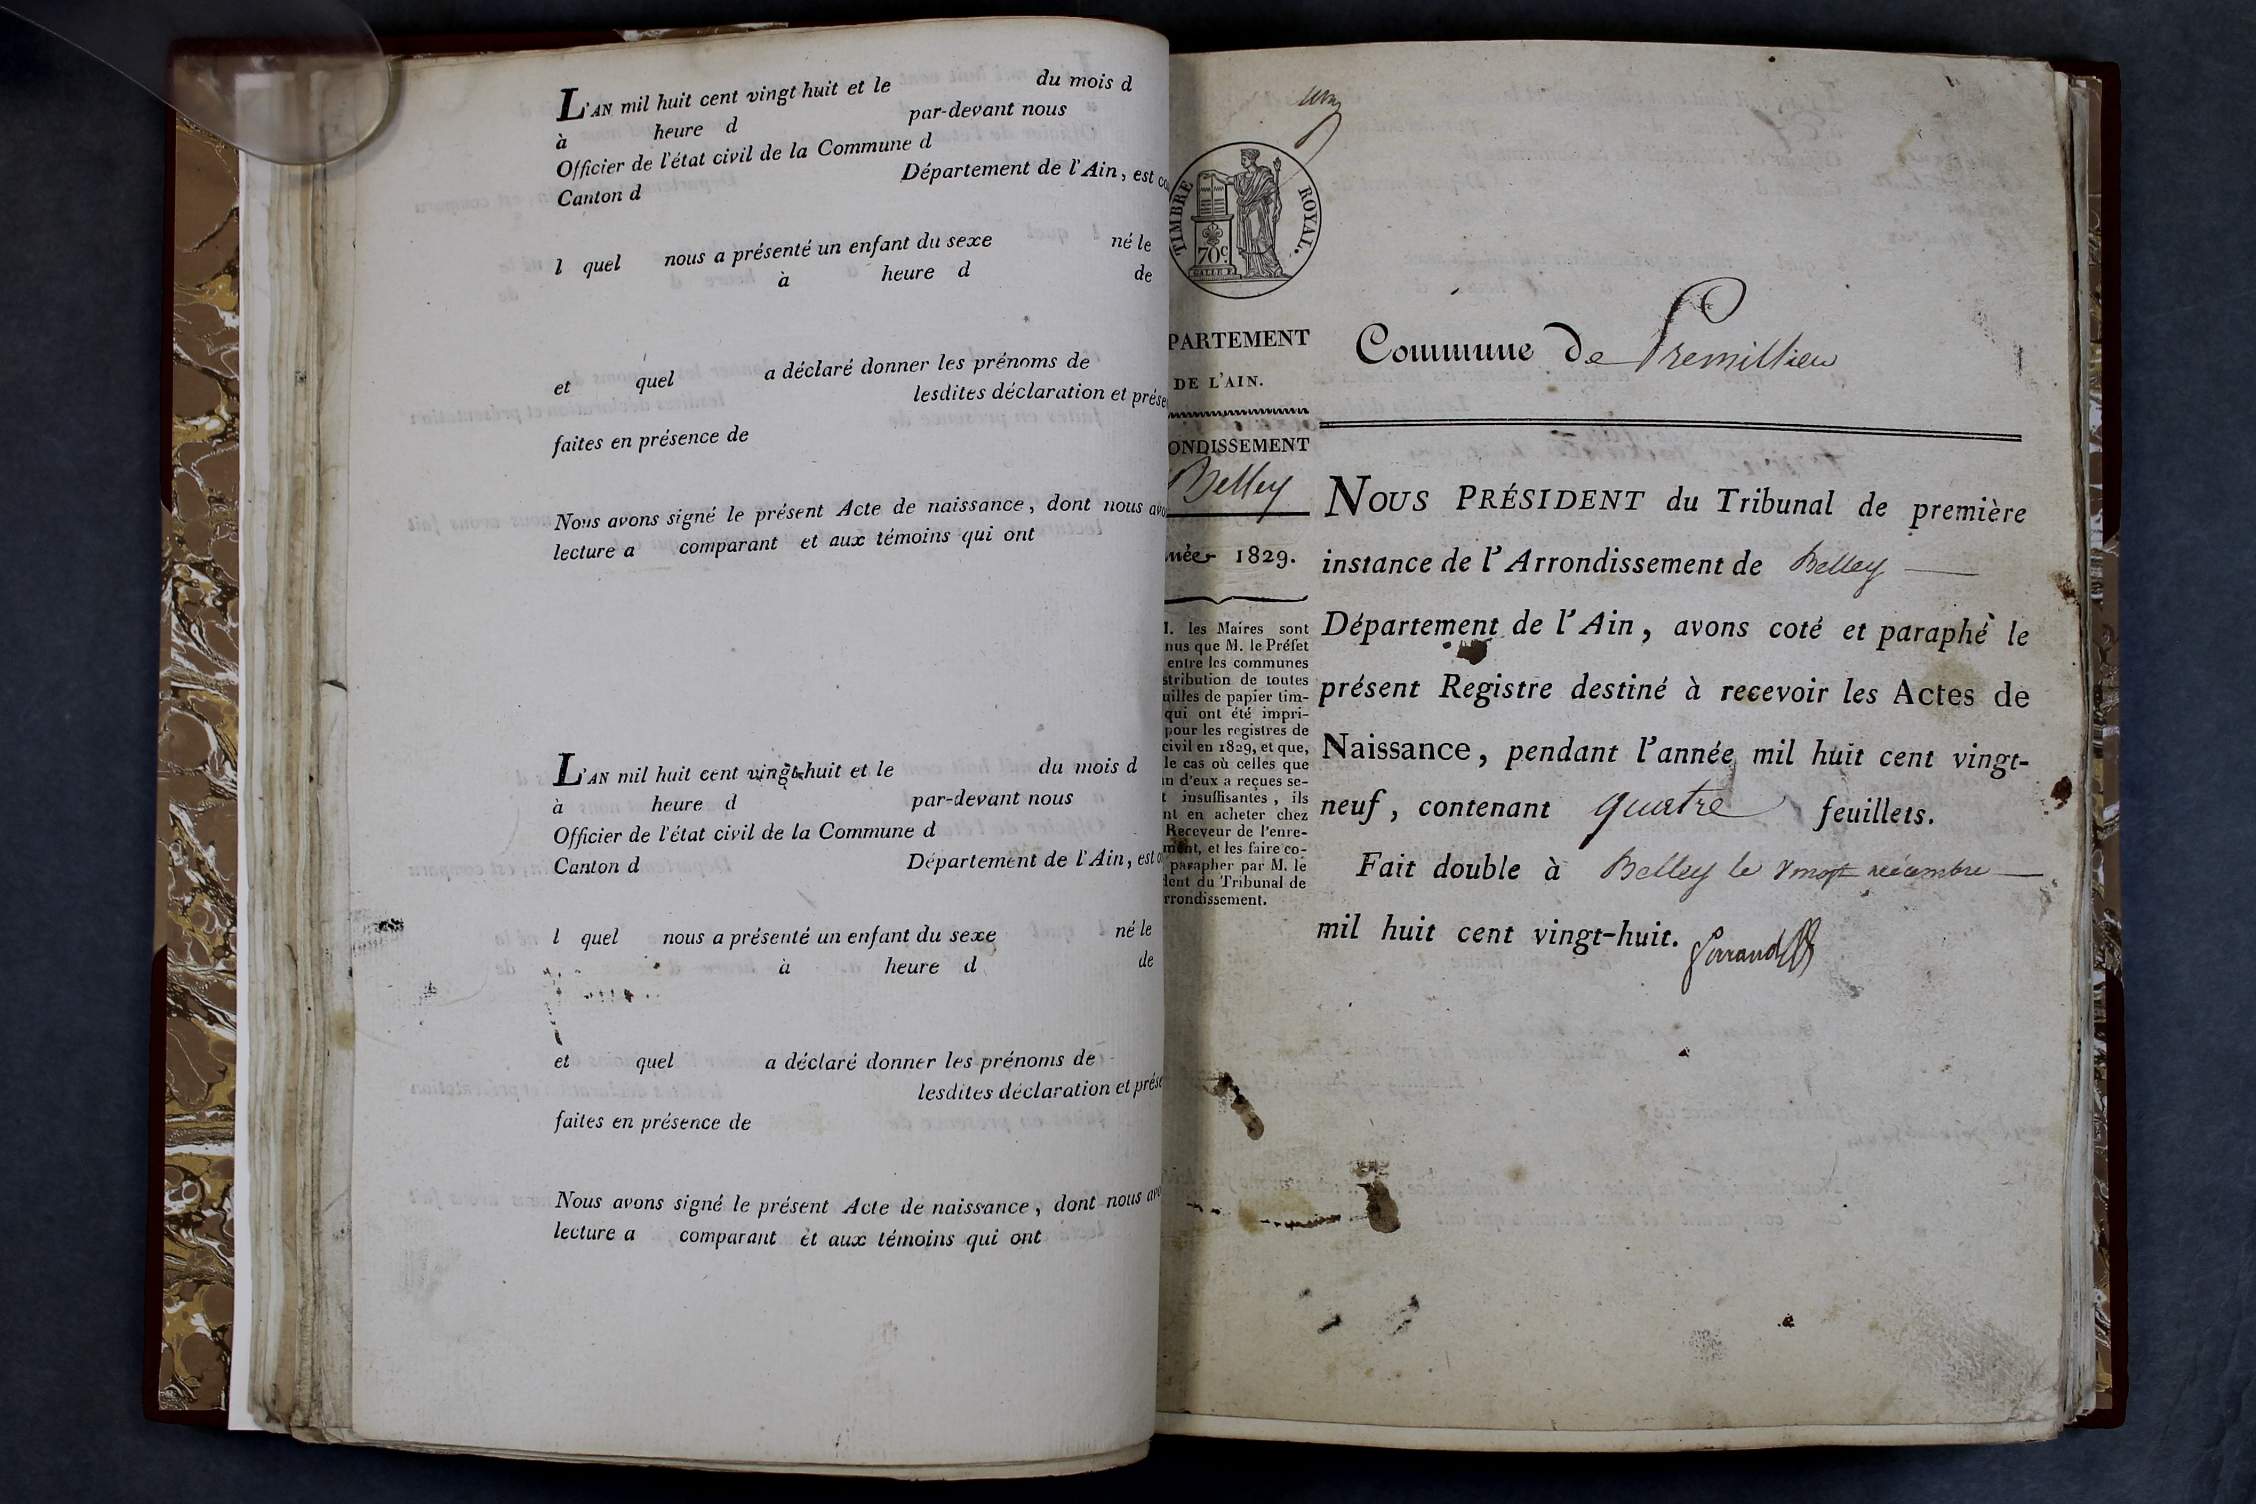 L'AN mil huit cent vingt-huit et le du mois d
à heure d par-devant nous
Officier de l'état civil de la Commune d
Canton d Département de l'Ain, est co
l quel nous a présenté un enfant du sexe né le
à heure d de
et quel a déclaré donner les prénoms de
lesdites déclaration et prése
faites en présence de
Nous avons signé le présent Acte de naissance, dont nous avo
lecture a comparant et aux témoins qui ont
L'AN mil huit cent vingt-huit et le du mois d
à heure d par-devant nous
Officier de l'état civil de la Commune d
Canton d Département de l'Ain, est c
l quel nous a présenté un enfant du sexe né le
à heure d de
et quel a déclaré donner les prénoms de
lesdites déclaration et prése
faites en présence de
Nous avons signé le présent Acte de naissance, dont nous avo
lecture a comparant et aux témoins qui ont
TIMBRE ROYAL.
70c
PARTEMENT
DE L'AIN.
ONDISSEMENT
Belley
née 1829.
M. les Maires sont
nus que M. le Préfet
entre les communes
stribution de toutes
uilles de papier tim-
qui ont été impri-
pour les registres de
civil en 1829, et que,
le cas où celles que
n d'eux a reçues se-
t insuffisantes, ils
nt en acheter chez
Receveur de l'enre-
ment, et les faire co-
parapher par M. le
dent du Tribunal de
rrondissement.
Commune de Premillieu
NOUS PRÉSIDENT du Tribunal de première
instance de l'Arrondissement de Belley
Département de l'Ain, avons coté et paraphé le
présent Registre destiné à recevoir les Actes de
Naissance, pendant l'année mil huit cent vingt-
neuf, contenant quatre feuillets.
Fait double à Belley le vingt décembre
mil huit cent vingt-huit.